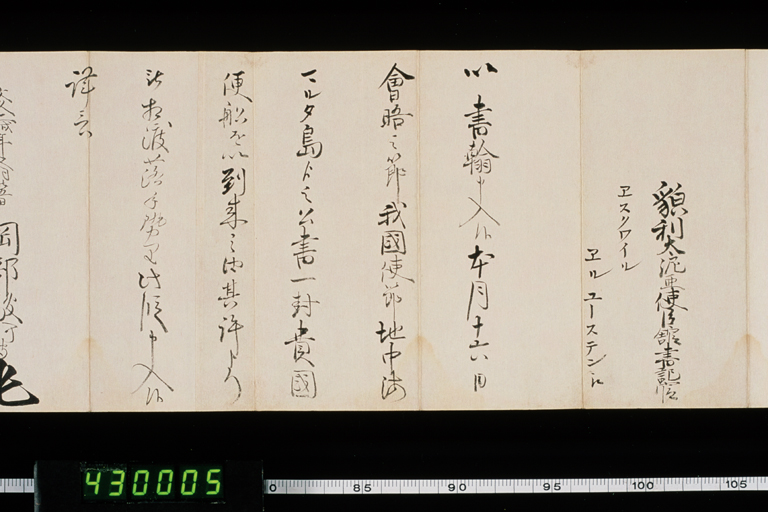 貌利太泥亜使臣館書記官
ヱスクワイル
ヱル ユーステン江
以書翰申入候本月十六日
會晤之節我國使節地中海
マルタ島ゟ之公書一封貴國
便船を以到来之由其許ゟ
被相渡落手
此段申入候
謹言
岡部駿河守
430005
0 85 90 95 100 105